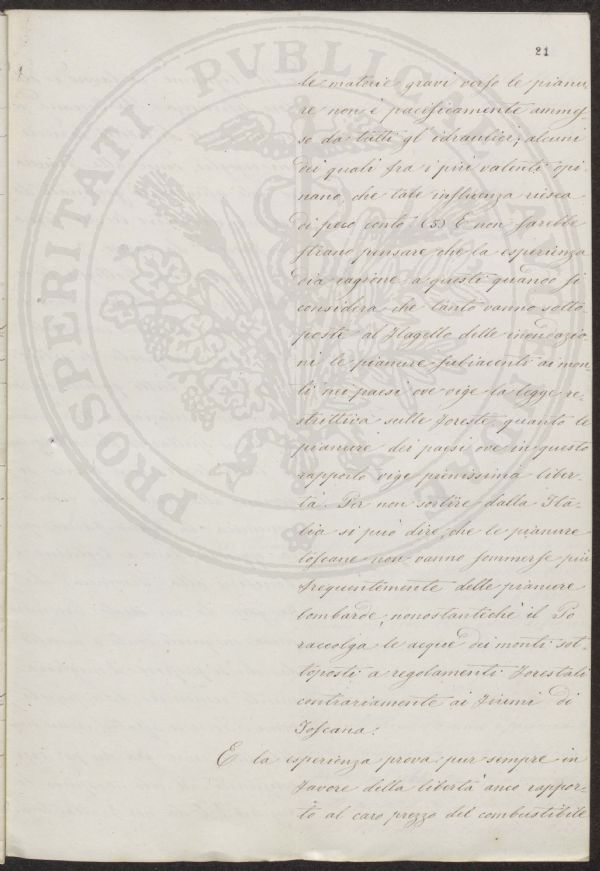 21
le materie gravi verso le pianu-
re non è pacificamente ammes-
so da tutti gl'idraulici, alcuni
dei quali fra i più valenti opi-
nano, che tale influenza riesca
di poco conto (5) E non sarebbe
strano pensare che la esperienza
dia ragione a questi quando si
considera che tanto vanno sotto
poste al flagello delle inondazio-
ni le pianure subiacenti ai mon-
ti nei paesi ove vige la legge re-
strittiva sulle foreste, quanto le
pianure dei paesi ove in questo
rapporto vige pienissima liber-
tà. Per non sortire dalla Ita-
lia si può dire, che le pianure
toscane non vanno sommerse più
frequentemente delle pianure
lombarde, nonostanteché il Po
raccolga le acque dei monti sot-
toposti a regolamenti forestali
contrariamente ai fiumi di
Toscana.
E la esperienza prova pur sempre in
favore della libertà anco rappor-
to al caro prezzo del combustibile
PROSPERITATI PUBLICAE